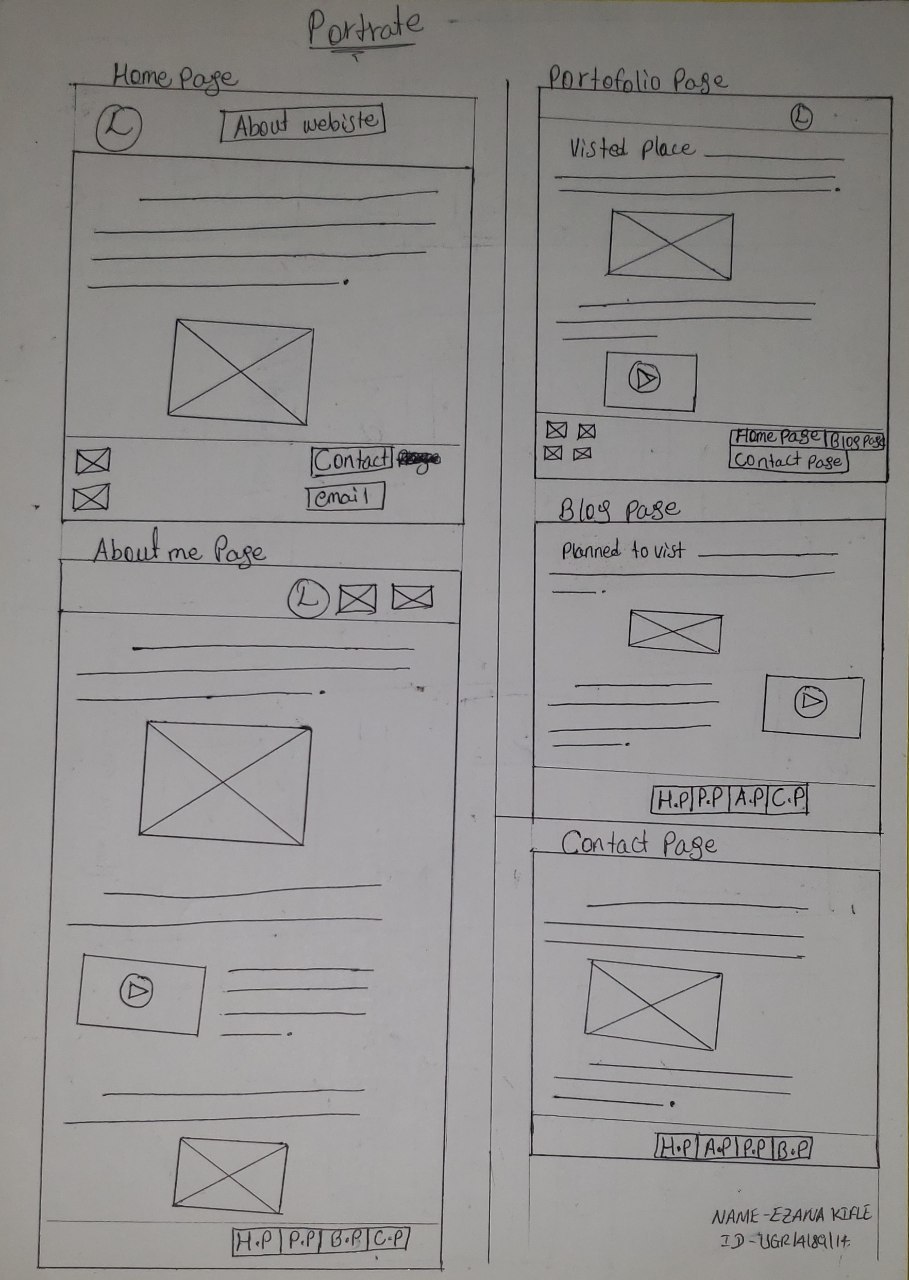 Portrate
Home Page
L
About webiste
Contact
email
About me Page
L
H.P P.P B.P C.P
Portofolio Page
L
Visted place
Home page Blog page
Contact page
Blog page
Planned to vist
H.P P.P A.P C.P
Contact Page
H.P A.P P.P B.P
NAME-EZANA KIFLE